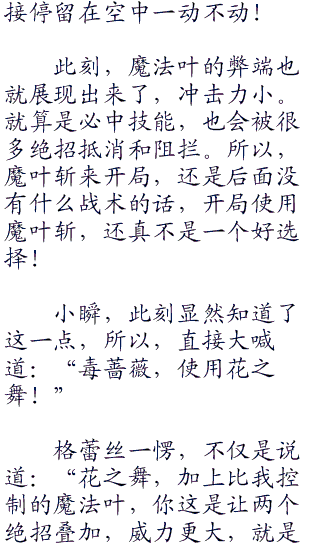 接停留在空中一动不动！
此刻，魔法叶的弊端也
就展现出来了，冲击力小。
就算是必中技能，也会被很
多绝招抵消和阻拦。所以，
魔叶斩来开局，还是后面没
有什么战术的话，开局使用
魔叶斩，还真不是一个好选
择！
小瞬，此刻显然知道了
这一点，所以，直接大喊
道：“毒蔷薇，使用花之
舞！”
格蕾丝一愣，不仅是说
道：“花之舞，加上比我控
制的魔法叶，你这是让两个
绝招叠加，威力更大，就是